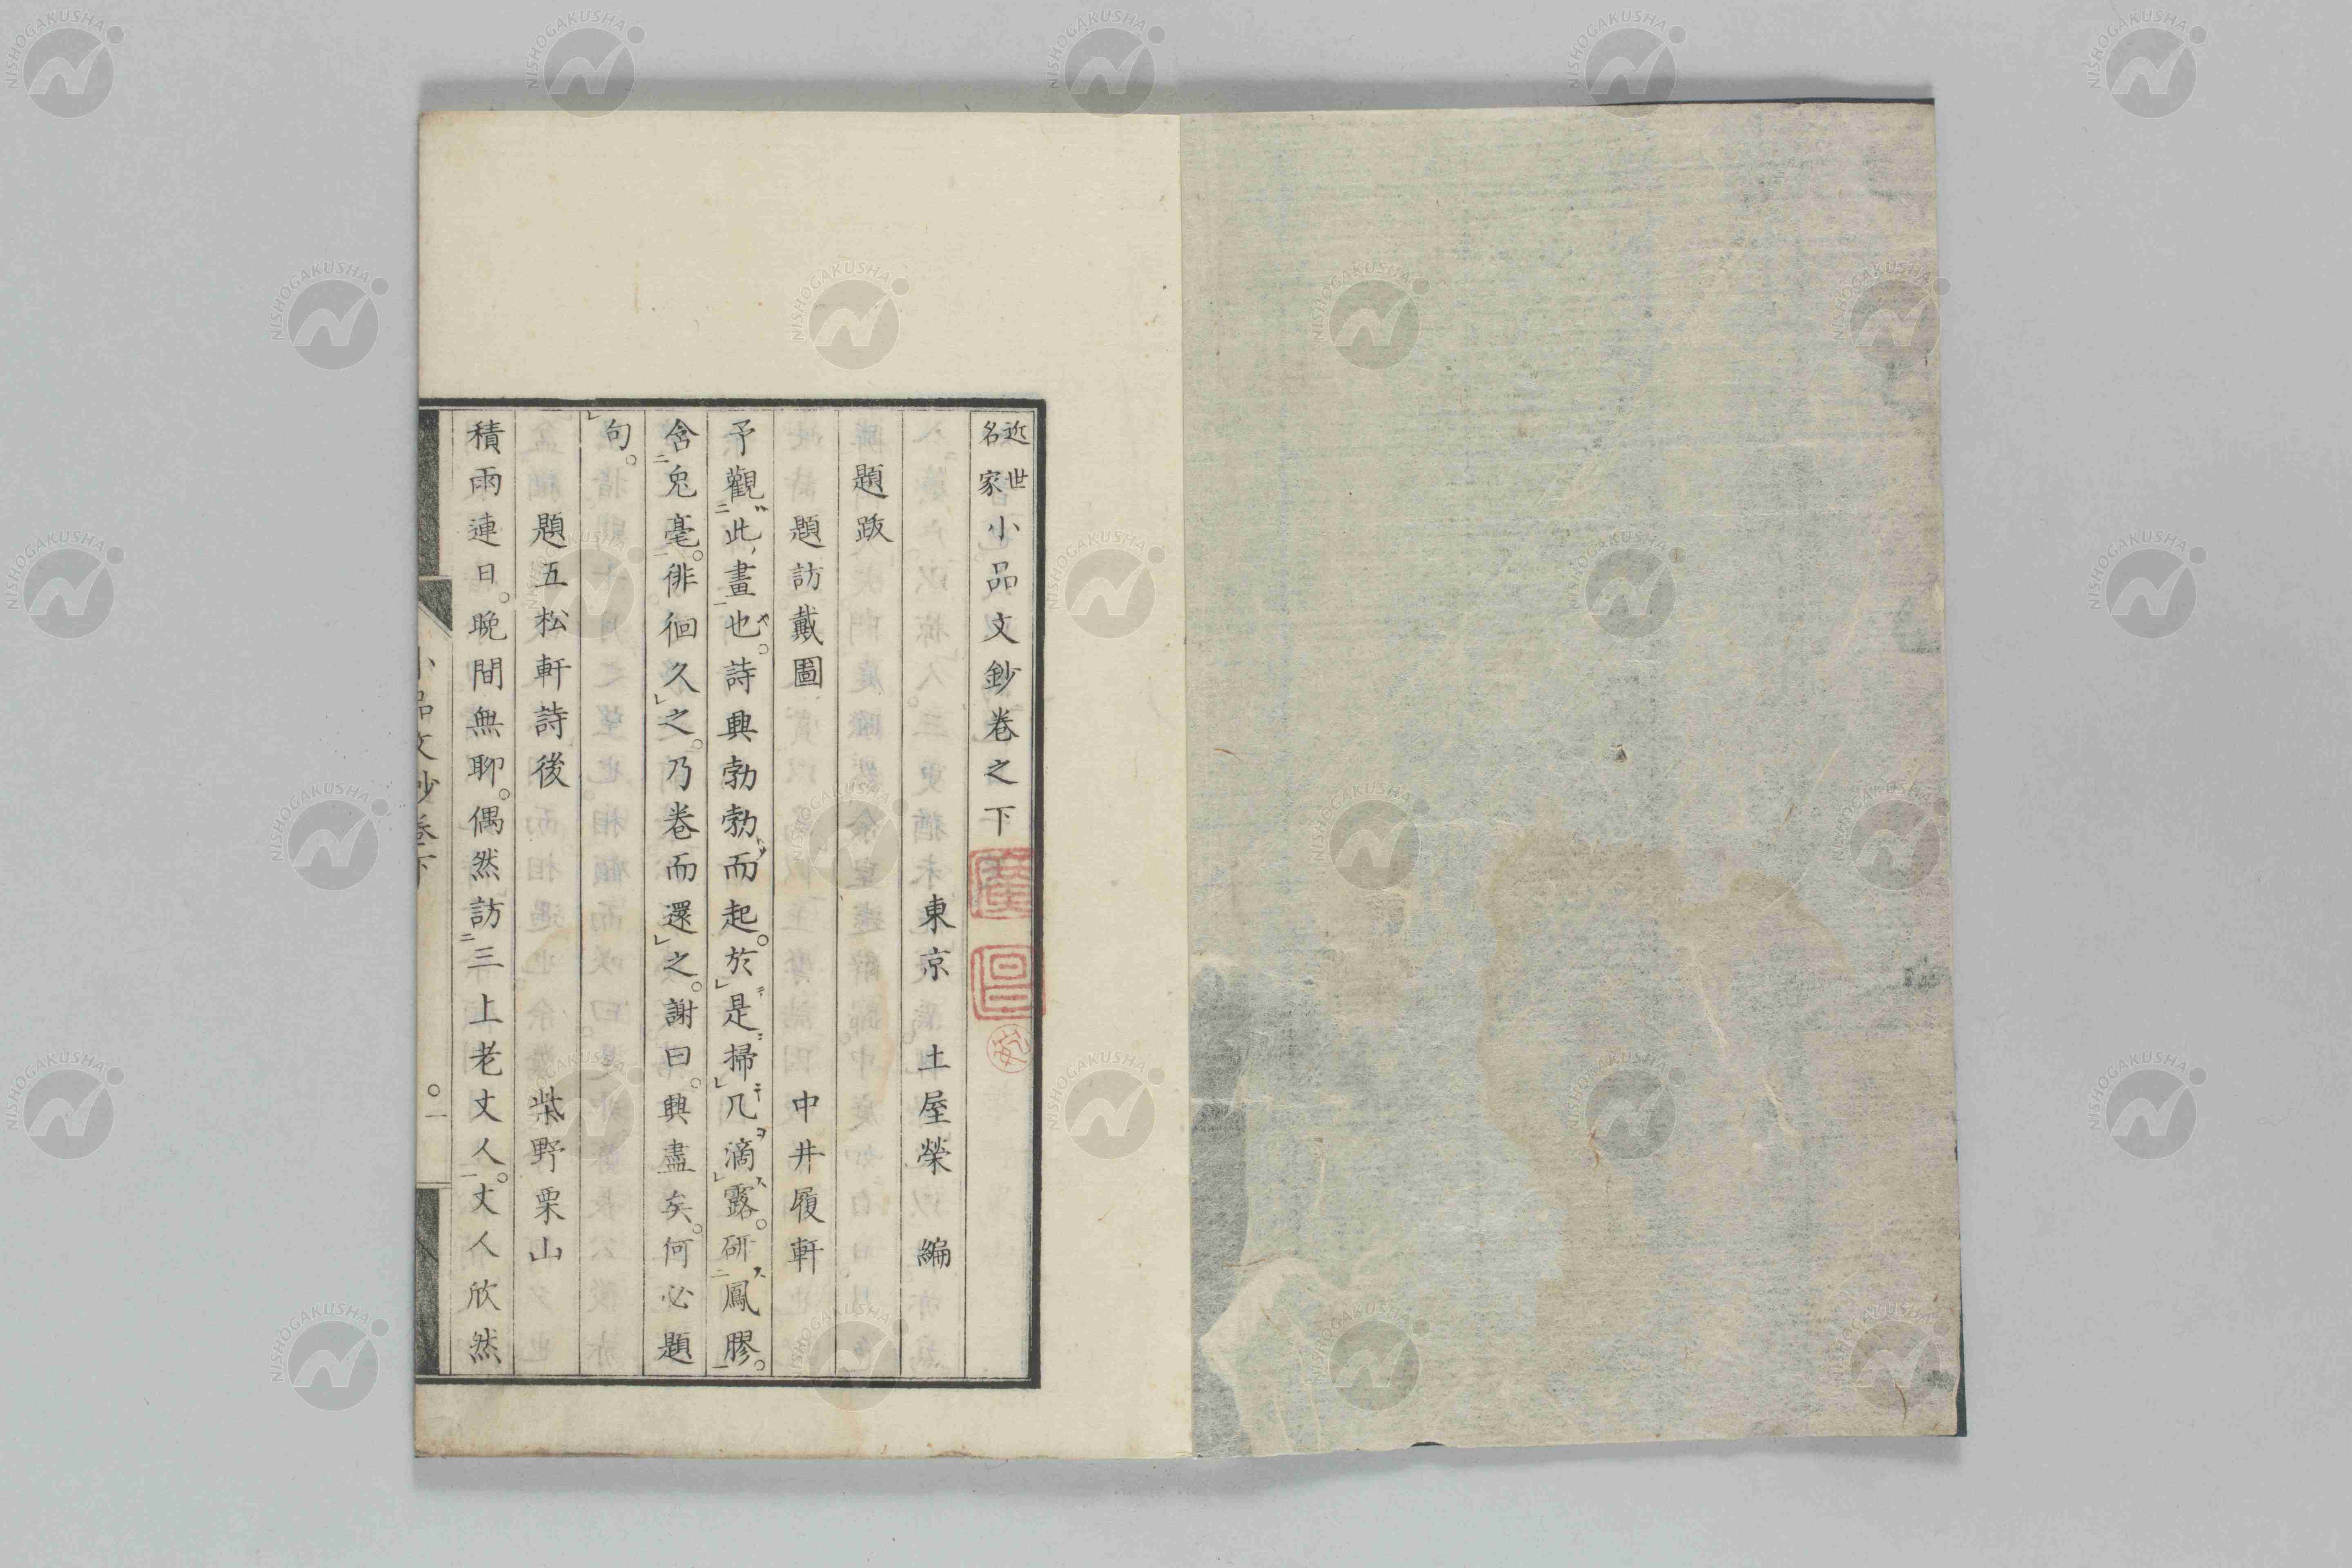 近世名家小品文鈔卷之下
東京 土屋榮 編
題跋
題訪戴圖 中井履軒
予觀此畫也。詩興勃勃而起。於是掃几滴露。研鳳膠。
含兎毫。徘徊久之。乃卷而還之。謝曰。興盡矣。何必題
句。
題五松軒詩後 柴野栗山
積雨連日。晚間無聊。偶然訪三上老丈人。丈人欣然
小品文鈔卷下
一
NISHOGAKUSHA